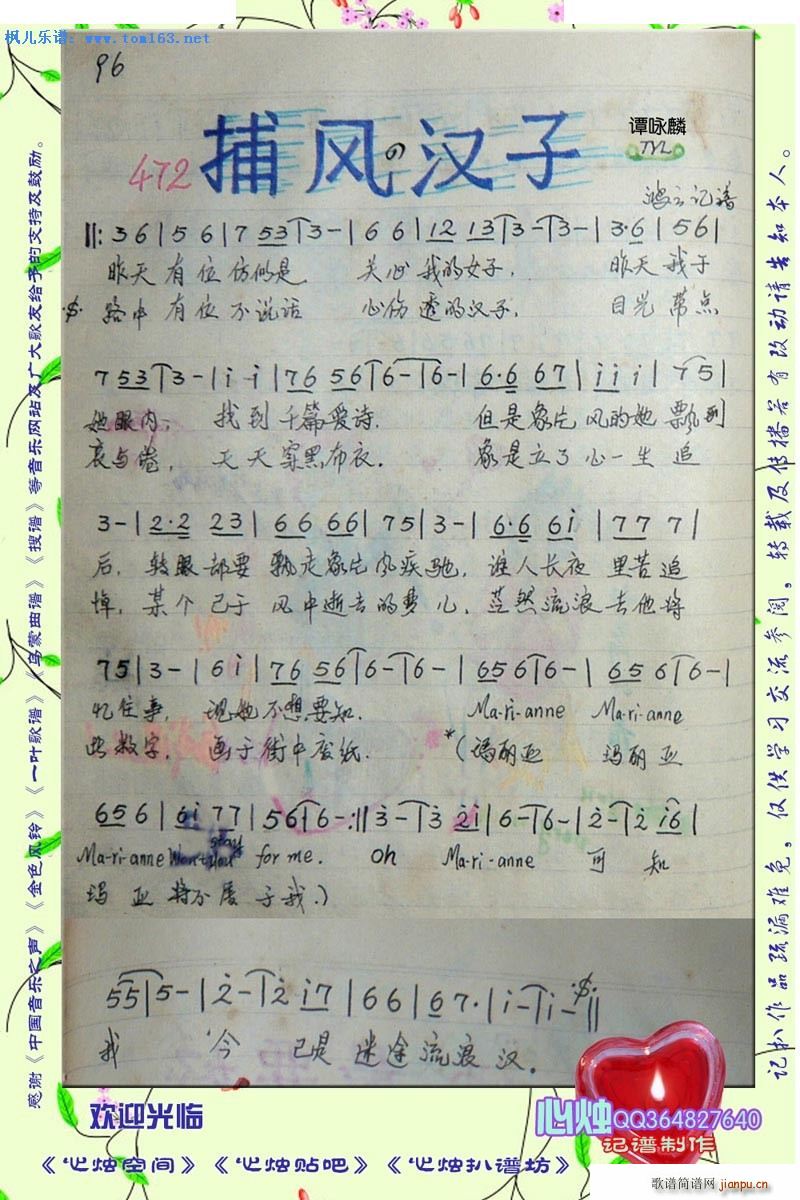 枫儿乐谱: www.tom163.net
96
472 捕风の汉子
谭咏麟
TYL
鸿云记谱
‖: 3 6 | 5 6 | 7 53 | 3 - | 6 6 | 12 13 | 3 - | 3 - | 3·6 | 56 |
昨天 有位 仿似是 关心 我的女子. 昨天 我于
路中 有位 不说话 心伤 透的汉子. 目光 带点
7 53 | 3 - | i i | 76 56 | 6 - | 6 - | 6·6 67 | i i i | 75 |
她眼内, 找到 千篇爱诗. 但是象片 风的她 飘到
哀与倦, 天天 穿黑布衣. 象是立了 心一生 追
3 - | 2·2 23 | 66 66 | 75 | 3 - | 6·6 6i | 77 7 |
后, 转眼都要 飘走象片风疾驰, 谁人长夜 里苦追
悼, 某个已于 风中逝去的梦儿, 茫然流浪 去他将
75 | 3 - | 6 i | 76 56 | 6 - | 6 - | 65 6 | 6 - | 65 6 | 6 - |
忆往事, 现她 不想要知. Ma-ri-anne Ma-ri-anne
些数字, 画于 街中废纸. *(玛丽亚 玛丽亚
65 6 | 6i 77 | 56 | 6 - :‖ 3 - | 3 2i | 6 - | 6 - | 2 - | 2 i6 |
Ma-ri-anne Won't you stay for me. Oh Ma-ri-anne 可 知
玛 亚 将不属 于我.)
55 | 5 - | 2 - | 2 i7 | 66 | 67· | i - | i - ‖
我 今 已是 迷途 流浪 汉.
感谢《中国音乐之声》《金色风铃》《一叶歌谱》《乌蒙曲谱》《搜谱》等音乐网站及广大歌友给予的支持及鼓励。
记扒作品疏漏难免，仅供学习交流参阅，转载及传播若有改动请告知本人。
欢迎光临
心烛QQ364827640
记谱制作
《心烛空间》《心烛贴吧》《心烛扒谱坊》
歌谱简谱网
www.jianpu.cn